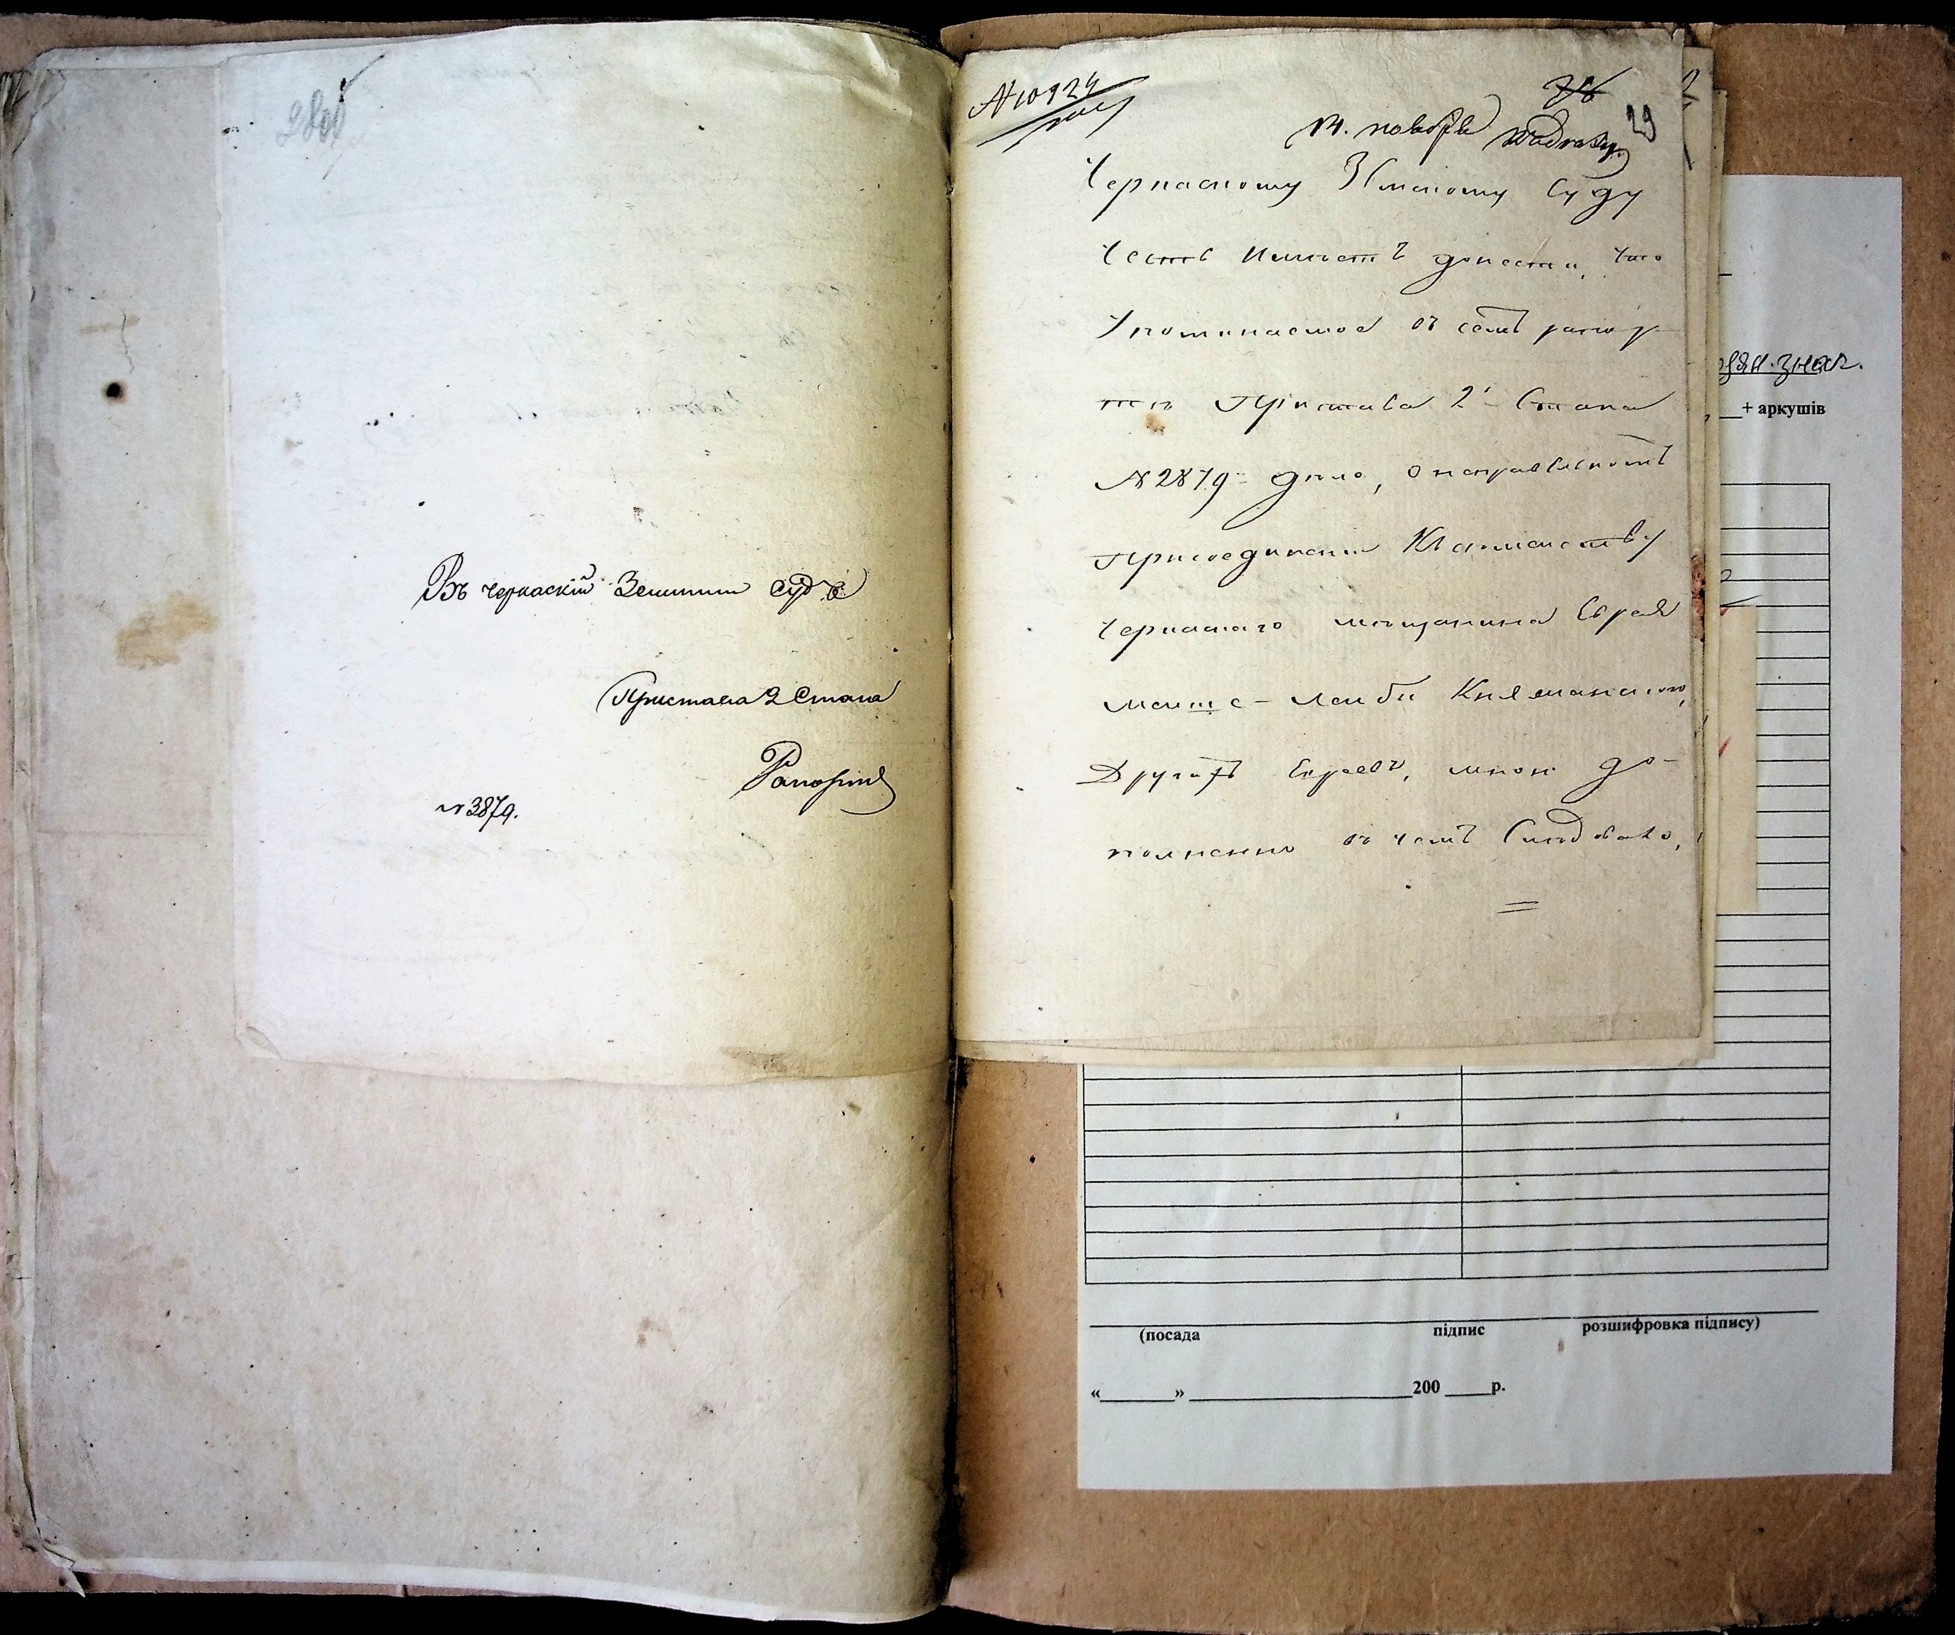 28об
Въ Черкаскій Земскій Судъ
Пристава 2 Стана
№ 3879.
№ 10924
28
29
Черкаскому Земскому Суду
Честь имѣетъ донести, что
упоминаемое въ семъ рапор-
тѣ Пристава 2 Стана
№ 2879 дѣло, о неправильномъ
присоединеніи къ
Черкаскаго мещанина Еврея
Лейби
другихъ Евреевъ, мною до-
полненно въ чемъ слѣдовало,
знак.
+ аркушів
(посада підпис розшифровка підпису)
«_______» _____________________200 ____р.